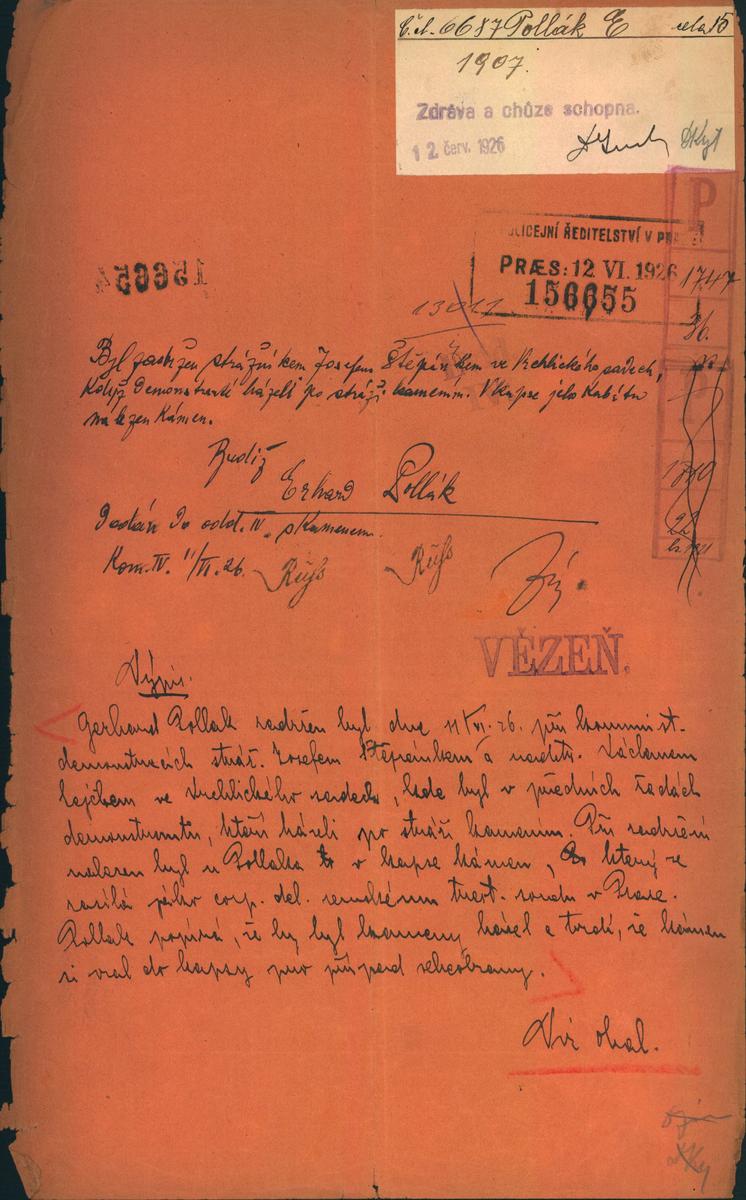 Č.čl. 6687 Pollák E cela 15
1907.
Zdráva a chůze schopna.
12. červ. 1926
POLICEJNÍ ŘEDITELSTVÍ V PRAZE
PRÆS: 12 VI. 1926
156655
156654
13011
P
1747
26.
1779
22
Byl zadržen strážníkem Josefem Štěpánkem ve Vrchlického sadech,
když demonstranti házeli po stráži kamením. V kapse jeho kabátu
nalezen kámen.
Erhard Pollák
Dodán do odd. IV. s kamenem.
Kom. IV. 11/VI. 26.
VĚZEŇ.
Výpis.
Gerhard Pollak zadržen byl dne 11/VI. 26. při kommunist.
demonstracích stráž. Josefem Štěpánkem a Václavem
ve Vrchlického sadech, kde byl v předních řadách
demonstrantů, kteří házeli po stráži kamením. Při zadržení
nalezen byl u Pollaka v kapse kámen, který se
zasílá jako corp. del. zemskému trest. soudu v Praze.
Pollak popírá, že by byl kameny házel a tvrdí, že kámen
si vzal do kapsy pro případ sebeobrany.
Viz obal.